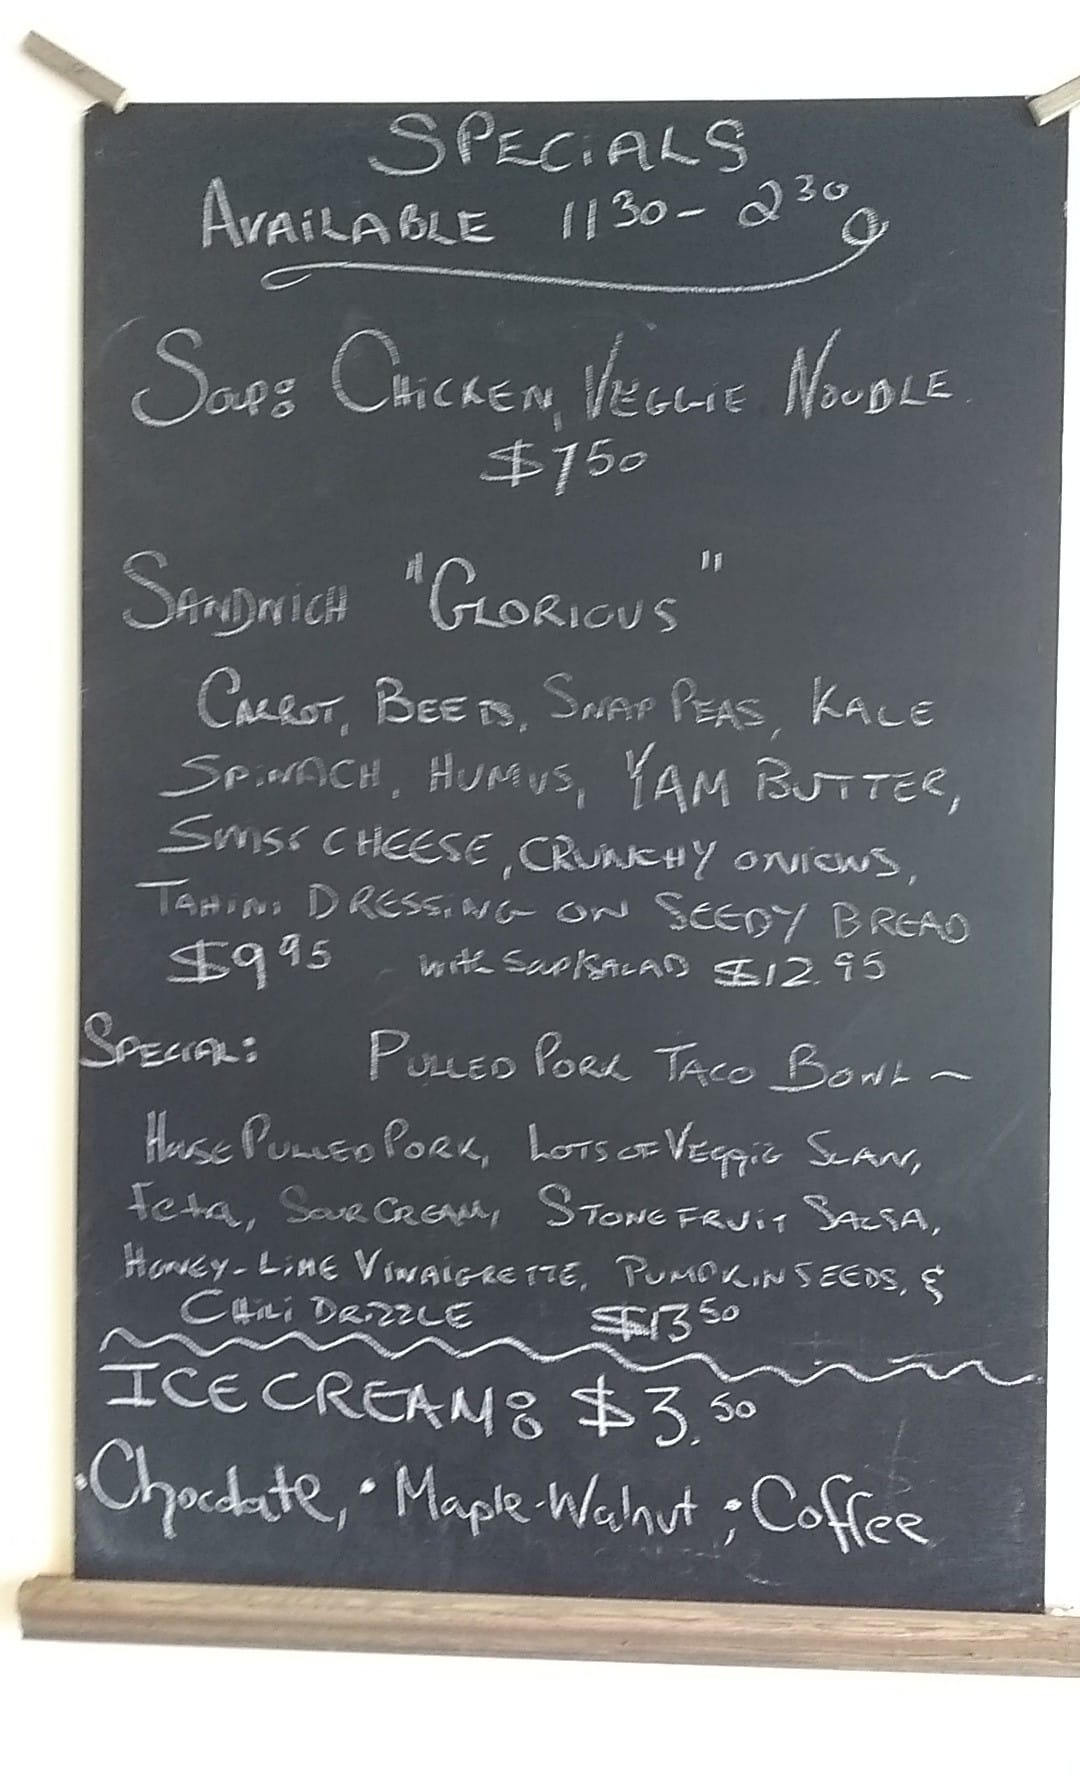 SPECiALS
AVAiLABLE 1130 - 230
Soup: CHiCKEN, VEGGiE NOODLE
$750
SANDWiCH "GLORIOUS"
CARROT, BEETS, SNAP PEAS, KALE
SPiNACH, HUMUS, YAM BUTTER,
SWISS CHEESE, CRUNCHY ONIONS,
TAHiNi DRESSiNG ON SEEDY BREAD
$995 with Soup/SALAD $12.95
SPECIAL: PULLED PORK TACO BOWL ~
HOUSE PULLED PORK, LOTS OF VEGGiE SLAW,
Feta, SOUR CREAM, STONEFRUiT SALSA,
HONEY-LIME VINAIGRETTE, PUMPKIN SEEDS, &
CHiLi DRiZZLE $1350
ICE CREAM: $3.50
•Chocolate, • Maple-Walnut, • Coffee